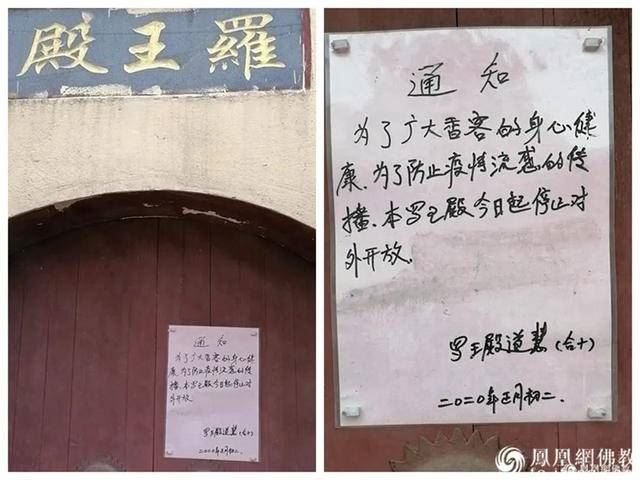 羅王殿
通知
为了广大香客的身心健
康、为了防止疫情流感的传
播、本罗王殿今日起停止对
外开放.
罗王殿道慧(合十)
二〇二〇年正月初二.
通知
为了广大香客的身心健
康、为了防止疫情流感的传
播、本罗王殿今日起停止对
外开放.
罗王殿道慧(合十)
二〇二〇年正月初二.
鳳凰網佛教